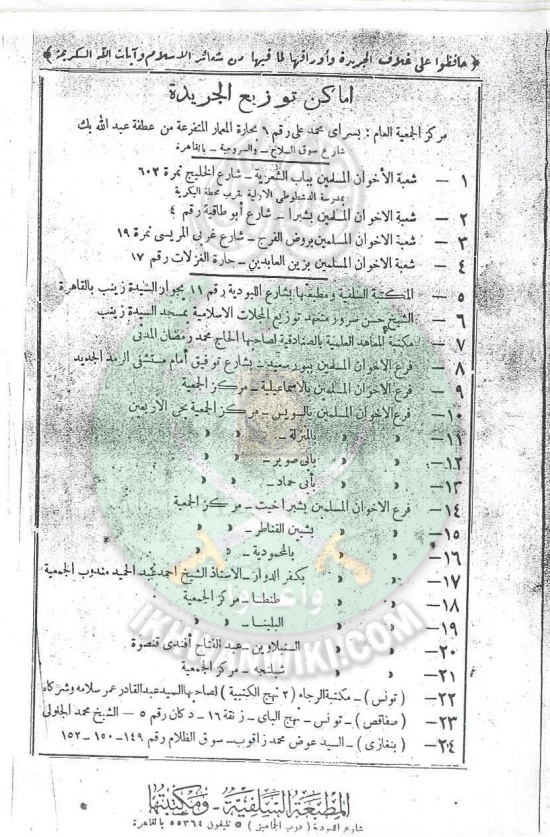 ﴿ حافظوا على غلاف الجريدة وأوراقها لما فيها من شعائر الاسلام وآيات الله الكريمة ﴾
اماكن توزيع الجريدة
مركز الجمعية العام : بسراى محمد على رقم ٦ بحارة المعمار المتفرعة من عطفة عبد الله بك
شارع سوق السلاح – والسروجية – بالقاهرة
١ – شعبة الأخوان المسلمين بباب الشعرية – شارع الخليج نمرة ٦٠٢
بمدرسة الدشطوطى الاولية بقرب محطة البكرية
٢ – شعبة الاخوان المسلمين بشبرا – شارع أبو طاقية رقم ٤
٣ – شعبة الاخوان المسلمين بروض الفرج – شارع غربى المريسى نمرة ١٩
٤ – شعبة الاخوان المسلمين بزين العابدين – حارة الغزلات رقم ١٧
٥ – المكتبة السلفية ومطبعتها بشارع اللبودية رقم ١١ بجوار السيدة زينب بالقاهرة
٦ – الشيخ حسن سرور متعهد توزيع المجلات الاسلامية بمسجد السيدة زينب
٧ – مكتبة المعاهد العلمية بالصنادقية لصاحبها الحاج محمد رمضان المدنى
٨ – فرع الاخوان المسلمين ببور سعيد – بشارع توفيق أمام مستشفى الرمد الجديد
٩ – فرع الاخوان المسلمين بالاسماعيلية – مركز الجمعية
١٠ – فرع الاخوان المسلمين بالسويس – مركز الجمعية بحى الاربعين
١١ – » » » بالمنزلة – » »
١٢ – » » » بأبى صوير – » »
١٣ – » » » بأبى حماد – » »
١٤ – فرع الاخوان المسلمين بشبراخيت – مركز الجمعية
١٥ – » » » بشبين القناطر – » »
١٦ – » » » بالمحمودية – » »
١٧ – » » » بكفر الدوار – الاستاذ الشيخ احمد عبد الحميد مندوب الجمعية
١٨ – » » » طنطا – مركز الجمعية
١٩ – » » » البلينا – » »
٢٠ – » » » السنبلاوين – عبد الفتاح أفندى قنصوة
٢١ – » » » شبلنجه – مركز الجمعية
٢٢ – ( تونس ) – مكتبة الرجاء ( ٢ نهج الكتبية ) لصاحبها السيد عبد القادر عمر سلامه وشركاه
٢٣ – ( صفاقص ) – تونس – نهج الباى – زنقة ١٦ – دكان رقم ٥ – الشيخ محمد الجلولى
٢٤ – ( بنغازى ) – السيد عوض محمد زاقوب – سوق الظلام رقم ١٤٩ – ١٥٠ – ١٥٢
المطبعة السلفية – ومكتبتها
شارع اللبودية ( درب الجماميز ) تليفون ٥٥٣٦٤ بالقاهرة
واعدوا
IKHWANWIKI.COM